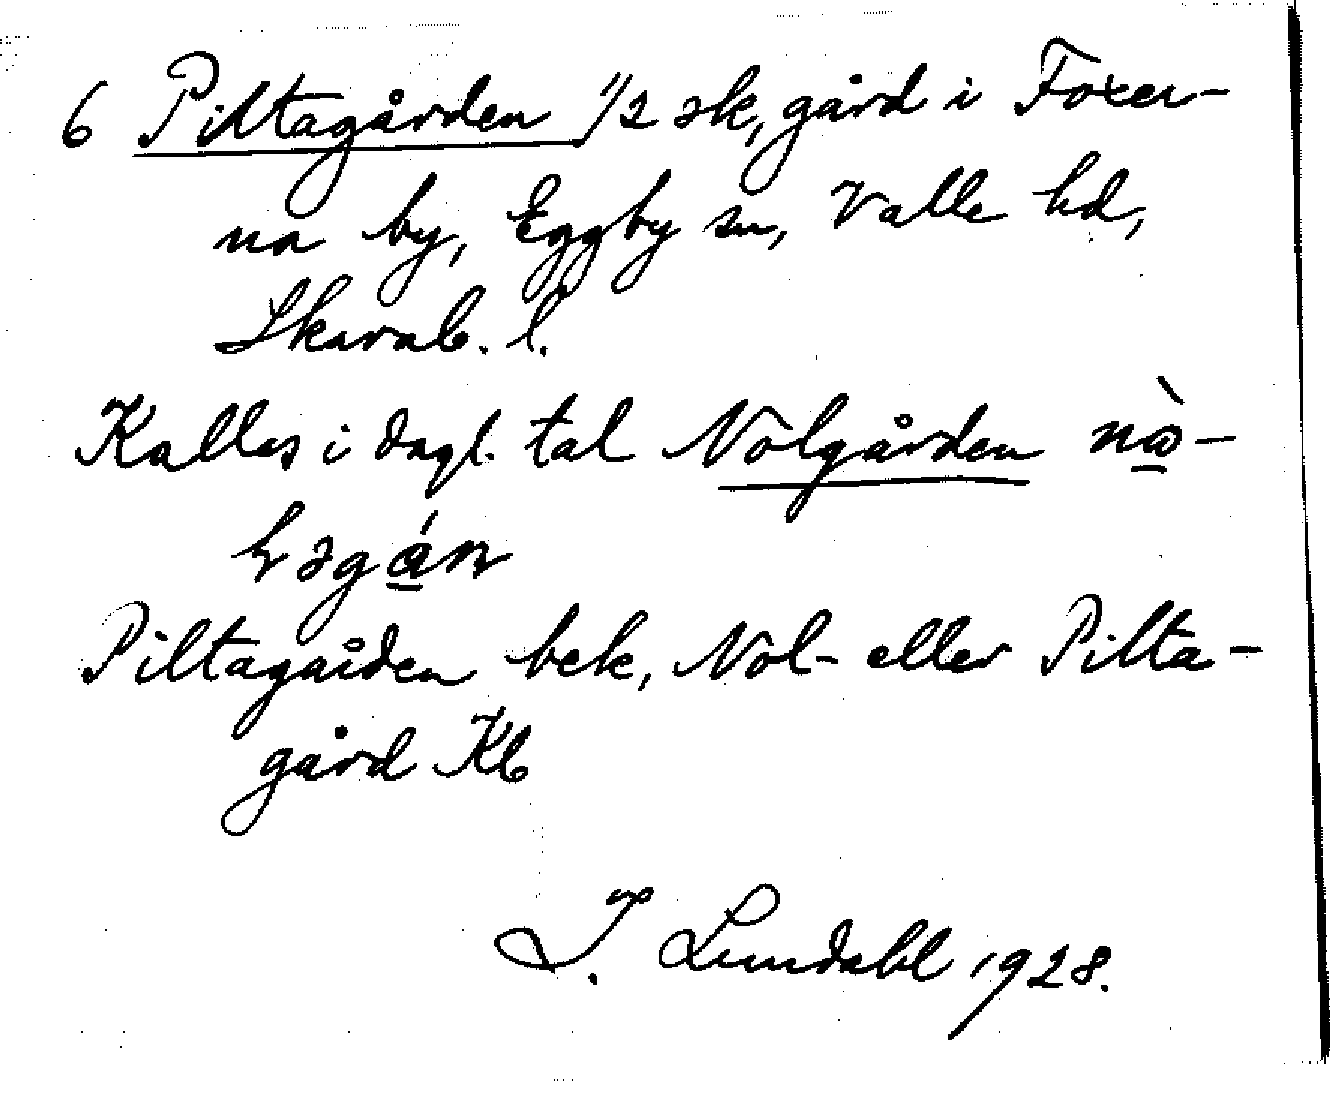 6 Piltagården 1/2 sk, gård i Foxer-
na by, Eggby sn, Valle hd,
Skarab. l.
Kalles i dagl. tal Nolgården
Piltagården bek, Nol- eller Pilta-
gård Kb
I. Lundahl 1928.